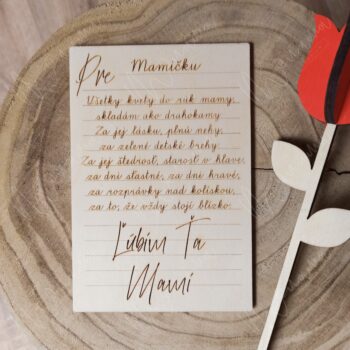 Pre Mamičku
Všetky kvety do rúk mamy,
skladám ako drahokamy.
Za jej lásku, plnú nehy,
za zelené detské brehy.
Za jej štedrosť, starosť v hlave,
za dni šťastné, za dni hravé,
za rozprávky nad kolískou,
za to, že vždy stojí blízko.
Ľúbim Ťa
Mami